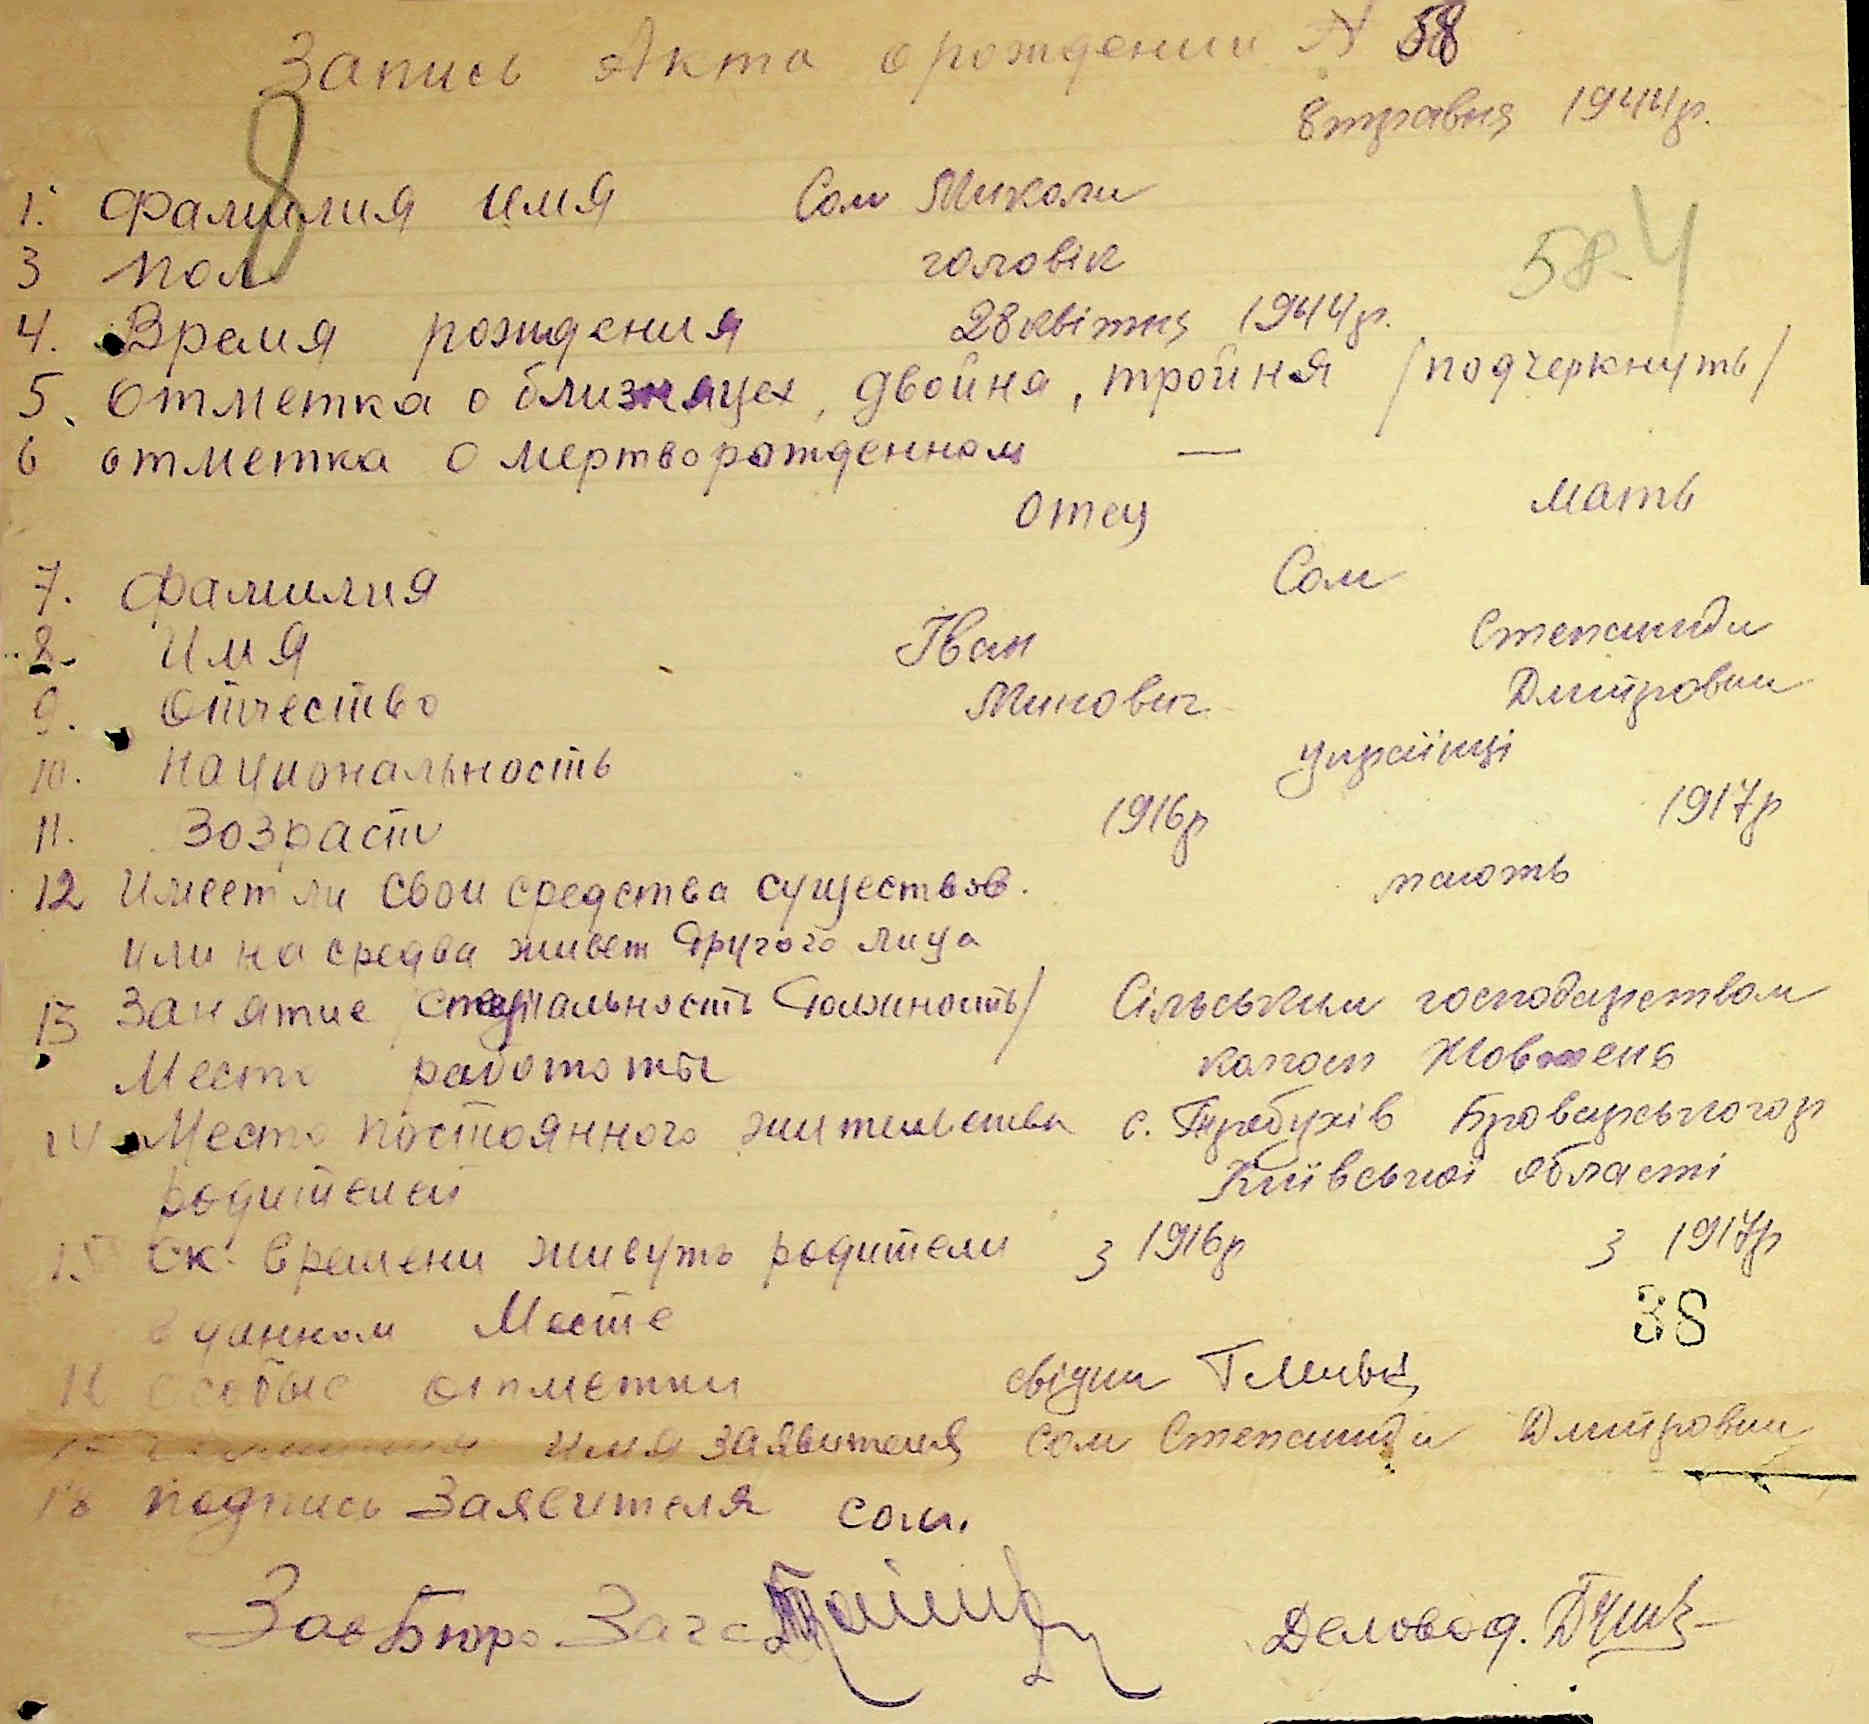 Запись Акта о рождении № 58
8 травня 1944р.
8
1. Фамилия имя Сом Миколи
3 Пол чоловік
58-Ч
4. Время рождения 28 квітня 1944р.
5. Отметка о близняцех, двойня, тройня /подчеркнуть/
6 отметка о мертворожденном —
отец мать
7. Фамилия Сом
8. Имя Іван Степаниди
9. Отчество Минович Дмитровни
10. Национальность українці
11. Возраст 1916р 1917р
12 Имеет ли свои средства существов. мають
или на средва живет другого лица
13 Занятие /специальность должность/ Сільським господарством
Место работоты колгосп Жовтень
14 Место постоянного жительства с. Требухів Броварського р
родителей Київської області
15 Ск. времени живуть родители з 1916р з 1917р
в данном Месте
38
особые отметки свідки
имя заявителя Сом Степаниди Дмитровни
18 подпись Заявителя Сом.
Зав Бюро Загс Деловод.